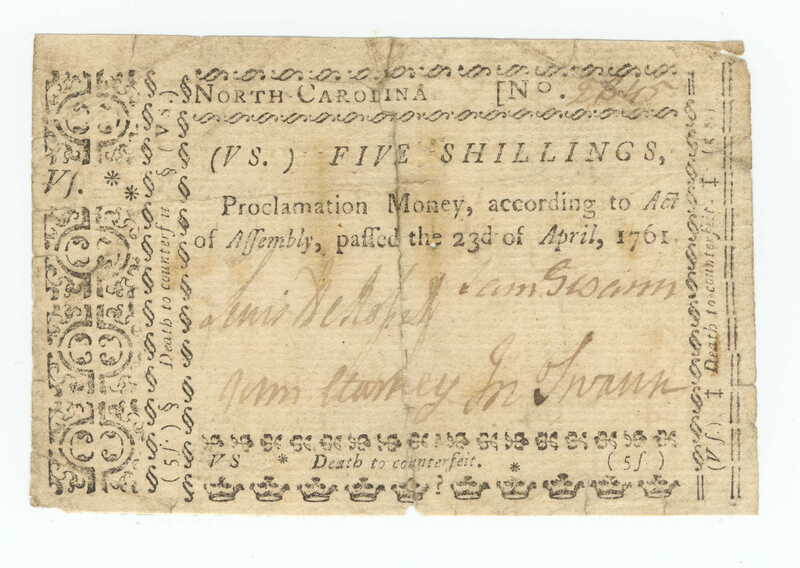 North-Carolina [No.
(VS.) FIVE SHILLINGS,
Proclamation Money, according to Act
of Assembly, paſſed the 23d of April, 1761.
Sam Swann
Lewis DeRosset
Starkey Jn Swann
Vſ. **
(5ſ) § Death to counterfeit § (Vs)
(Vſ) ‡ Death to counterfeit. ‡ (5s)
VS * Death to counterfeit. * (5ſ)